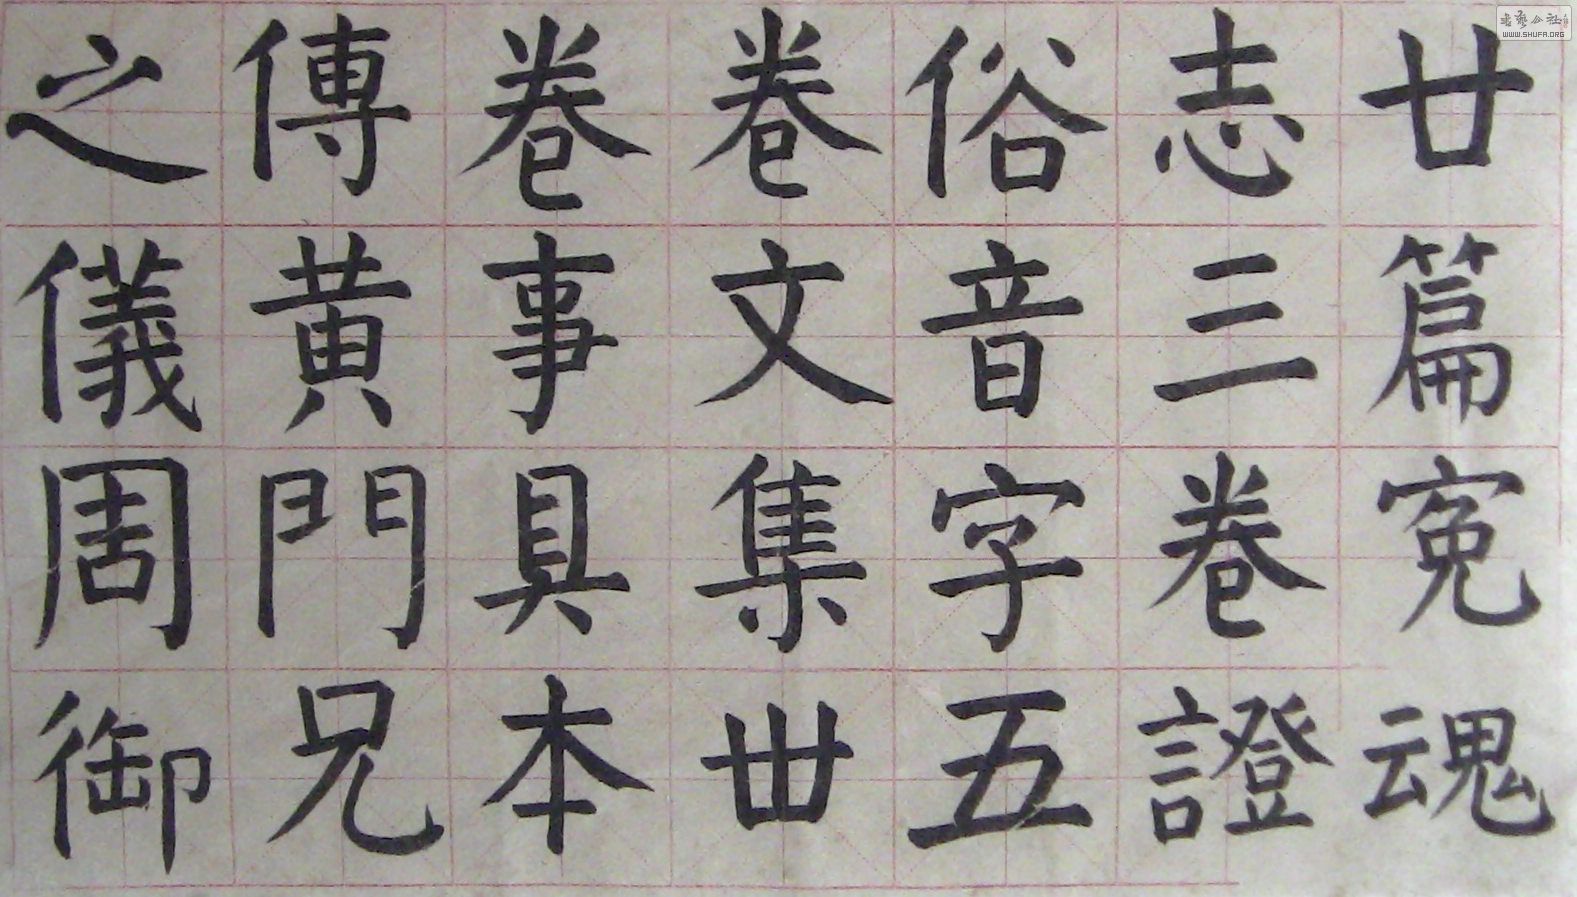 廿篇冤魂
志三卷證
俗音字五
卷文集丗
卷事具本
傳黄門兄
之儀周御
書藝公社
WWW.SHUFA.ORG